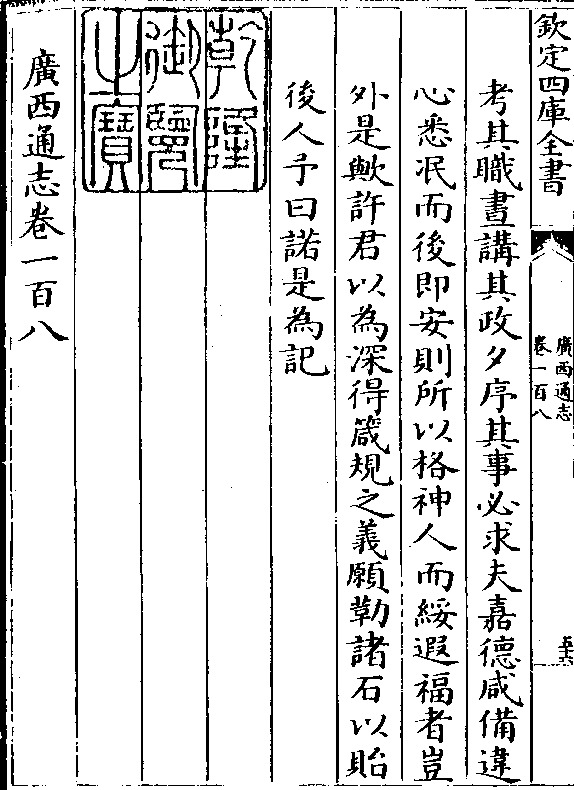 欽定四庫全書
廣西通志
卷一百八
五十六
考其職晝講其政夕序其事必求夫嘉德咸備違
心悉泯而後即安則所以格神人而綏遐福者豈
外是歟許君以為深得箴規之義願勒諸石以貽
後人予曰諾是為記
乾隆
御覽
之寶
廣西通志卷一百八